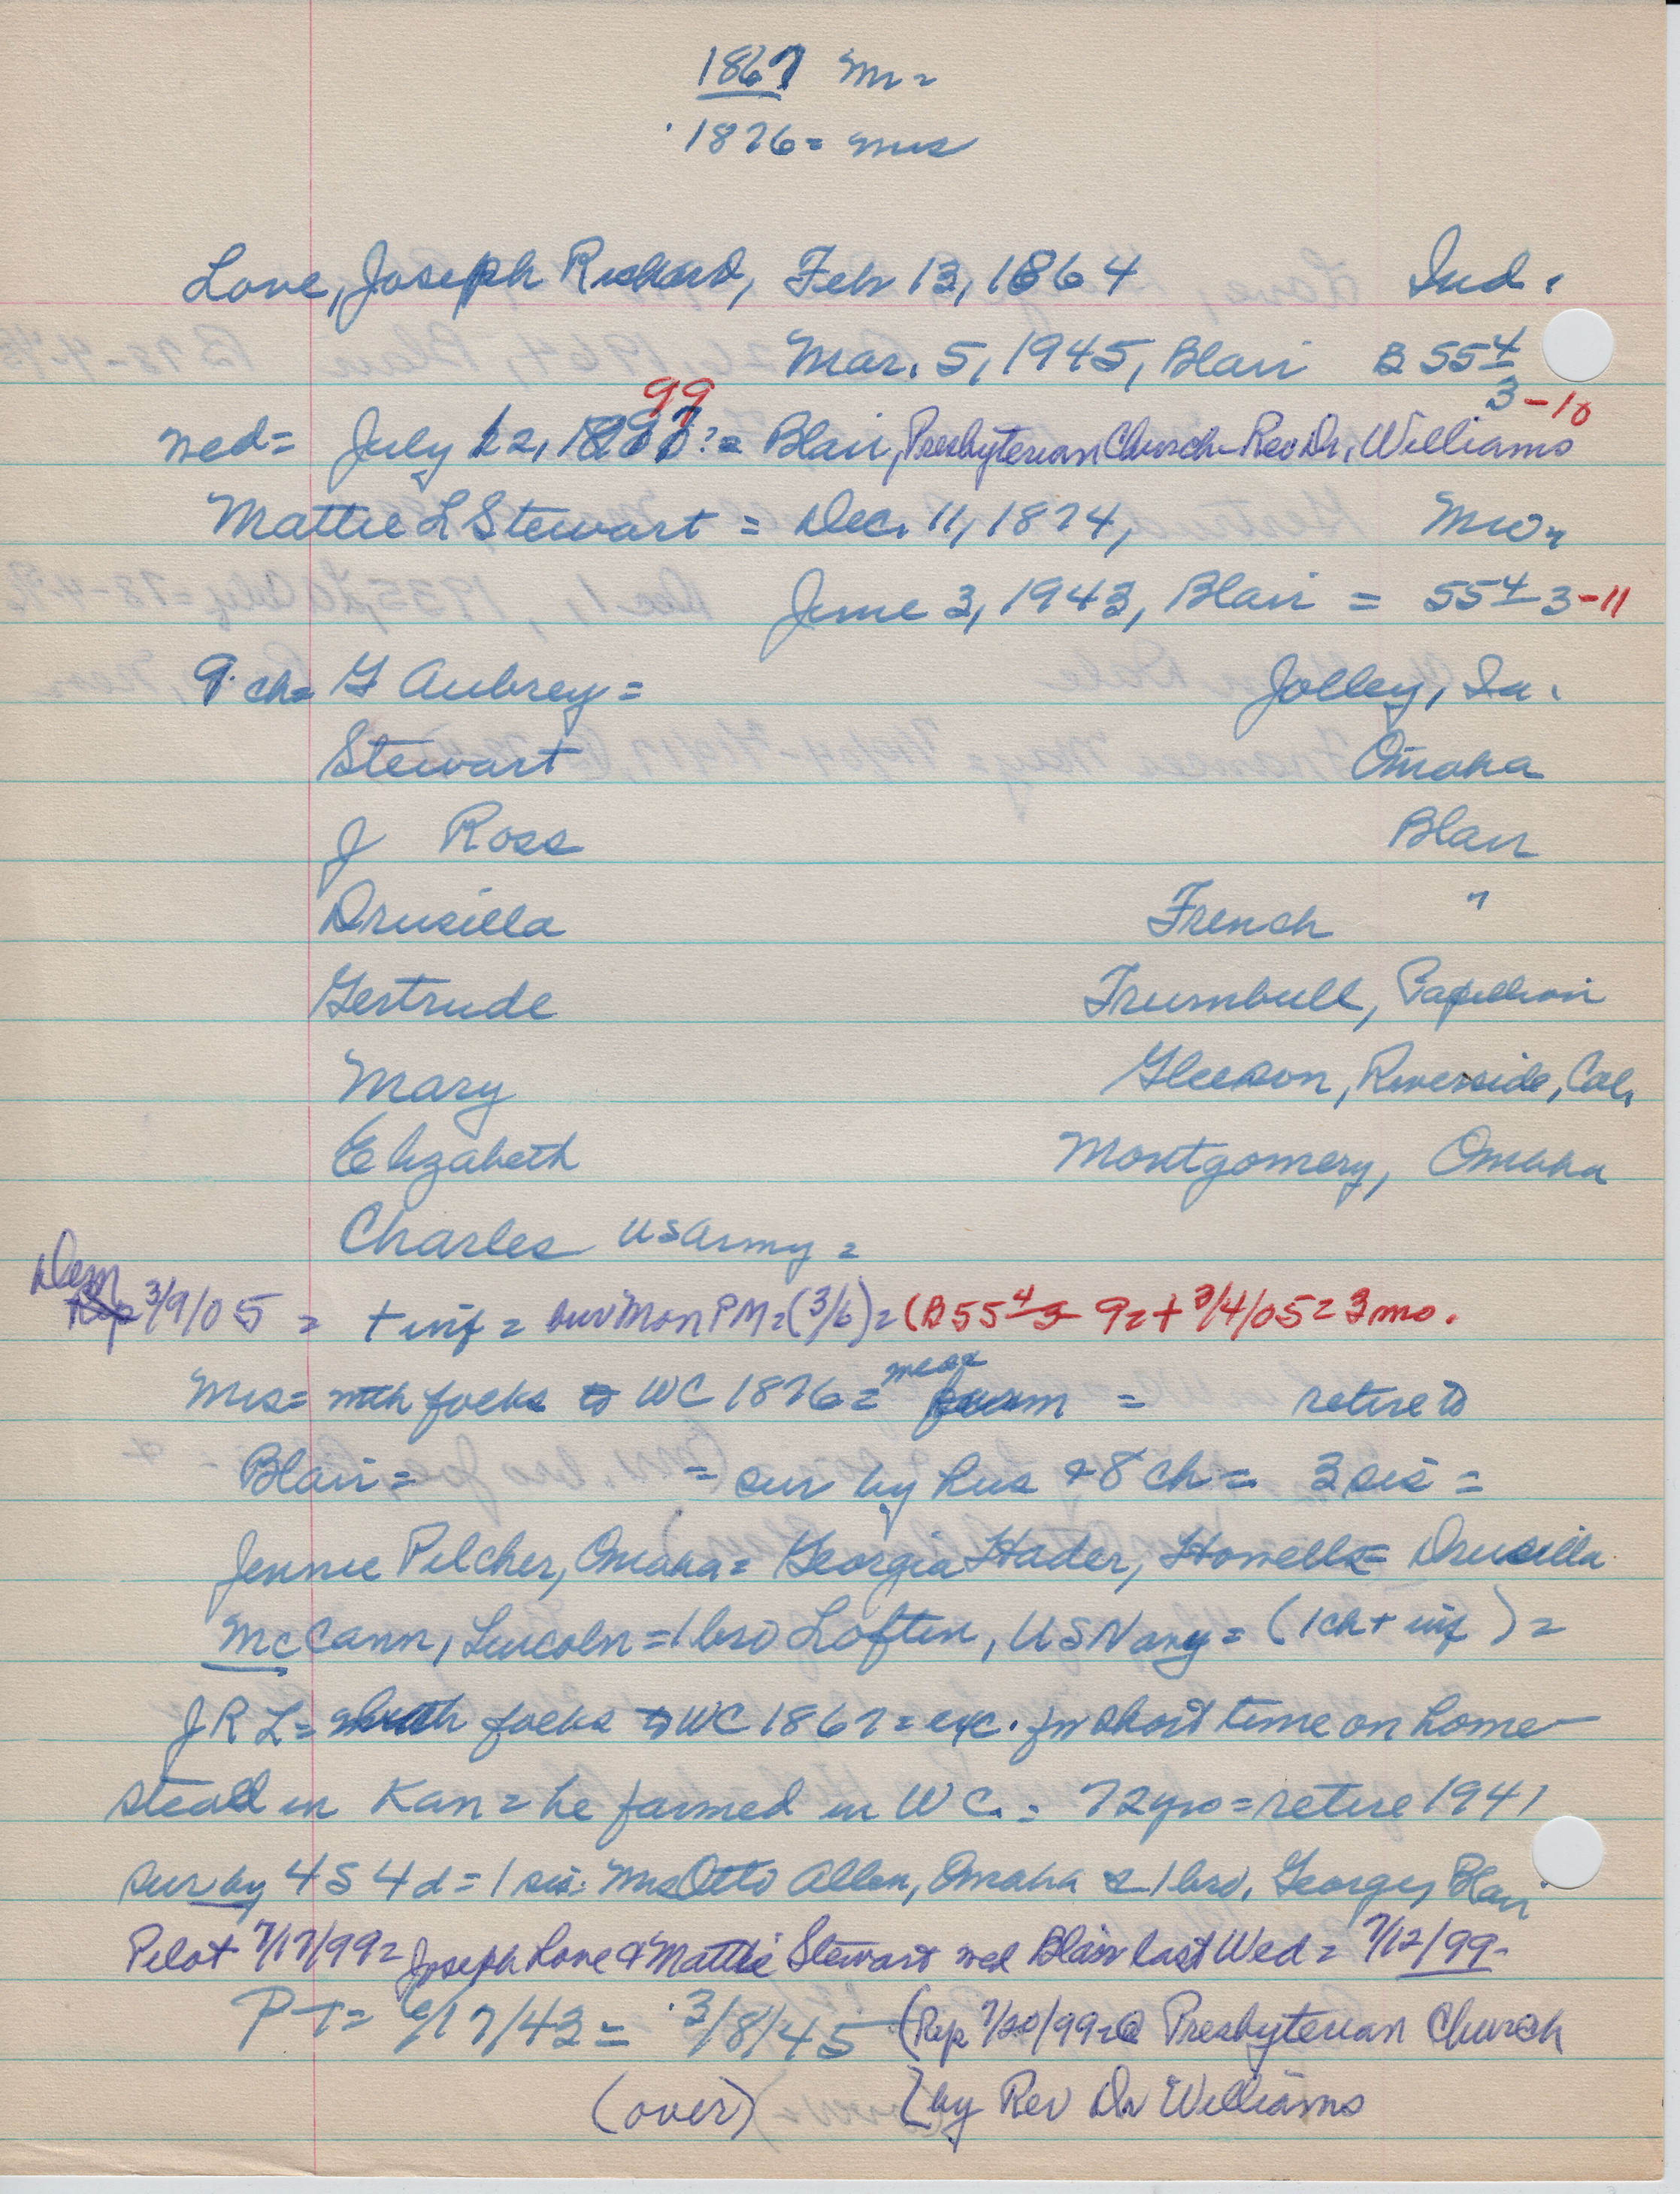 1867 Mr =
1876 = Mrs
Love, Joseph Richard, Feb 13, 1864 Ind.
Mar. 5, 1945, Blair B 55 4
3 - 10
99
wed = July 12, ? = Blair, Presbyterian Church Rev Dr. Williams
Mattie L Stewart = Dec. 11, 1874, Mo.
June 3, 1943, Blair = 55 4 3 - 11
9 ch = G Aubrey = Jolley, Ia.
Stewart Omaha
J Ross Blair
Drusilla French "
Gertrude Trumbull, Papillion
Mary Gleeson, Riverside, Cal.
Elizabeth Montgomery, Omaha
Charles US Army =
Dem
3/9/05 = + inf = bur Mon PM = (3/6) = (B 55 4 3 9 = + 3/4/05 = 3 mo.
near
Mrs = with folks to WC 1876 = farm = retire to
Blair = = sur by hus & 8 ch = 3 sis =
Jennie Pilcher, Omaha = Georgia Hader, Howells = Drusilla
McCann, Lincoln = 1 bro Loften, US Navy = (1 ch + inf) =
J R L = with folks to WC 1867 = exc. for short time on home-
stead in Kan = he farmed in WC. = 72 yrs = retire 1941
sur by 4 S 4 d = 1 sis. Mrs Otto Allen, Omaha & 1 bro, George, Blair
Pilot 7/17/99 = Joseph Love & Mattie Stewart wed Blair last Wed = 7/12/99 -
P-T = 6/17/43 = 3/8/45 (Rep 7/20/99 = @ Presbyterian Church
(over) [by Rev Dr Williams